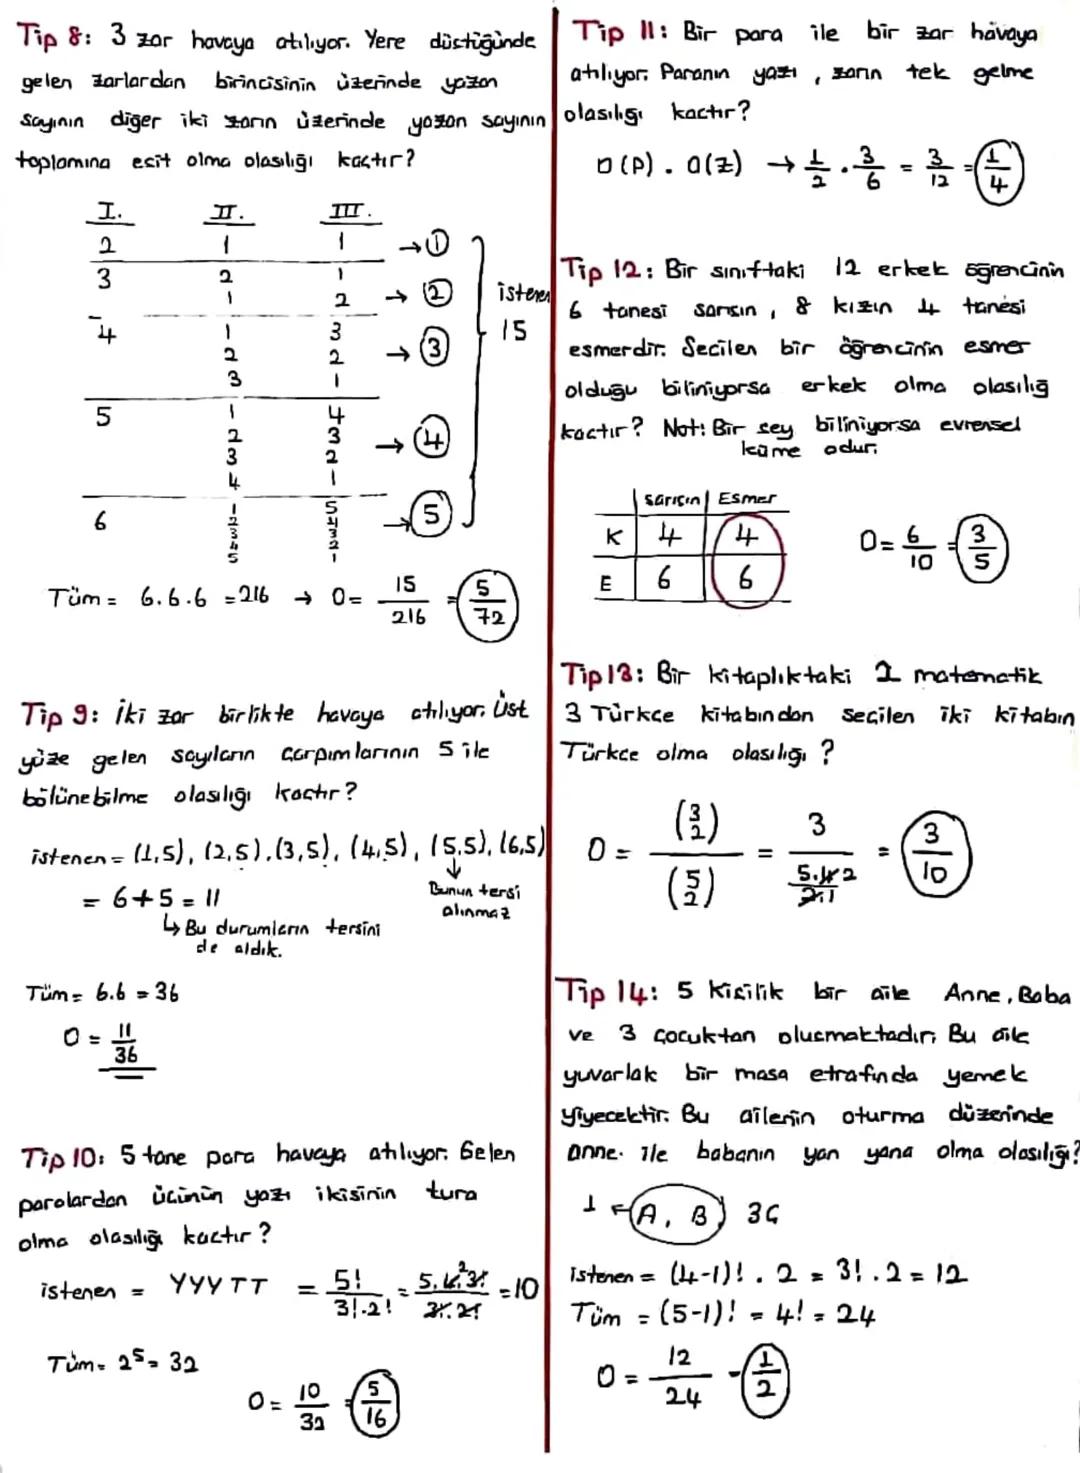 Tip 8: 3 zar havaya atılıyor. Yere düştüğünde
gelen zarlardan birincisinin üzerinde yazan
sayının diğer iki zarın üzerinde yazan sayının
toplamına eşit olma olasılığı kaçtır?
I. II. III.
2 1 1 → 1
3 2 1
1 2 → 2
4 1 3
2 2 → 3
3 1
5 1 4
2 3 → 4
3 2
4 1
6 1 5 → 5
2 4
3 3
4 2
5 1
istenen
15
Tüm = 6.6.6 = 216 → O = 15/216 = 5/72
Tip 9: İki zar birlikte havaya atılıyor. Üst
yüze gelen sayıların çarpımlarının 5 ile
bölünebilme olasılığı kaçtır?
istenen = (1,5), (2,5), (3,5), (4,5), (5,5), (6,5)
↓
Bunun tersi
alınmaz
= 6+5 = 11
↳ Bu durumların tersini
de aldık.
Tüm = 6.6 = 36
O = 11/36
Tip 10: 5 tane para havaya atılıyor. Gelen
paralardan üçünün yazı ikisinin tura
olma olasılığı kaçtır?
istenen = YYYTT = 5!/3!.2! = 5.4.3!/3!.2! = 10
Tüm = 2⁵ = 32
O = 10/32 = 5/16
Tip 11: Bir para ile bir zar havaya
atılıyor. Paranın yazı, zarın tek gelme
olasılığı kaçtır?
O(P) . O(Z) → 1/2 . 3/6 = 3/12 = 1/4
Tip 12: Bir sınıftaki 12 erkek öğrencinin
6 tanesi sarışın, 8 kızın 4 tanesi
esmerdir. Seçilen bir öğrencinin esmer
olduğu biliniyorsa erkek olma olasılığ
kaçtır? Not: Bir şey biliniyorsa evrensel
küme odur.
sarışın Esmer
K 4 4
E 6 6
O = 6/10 = 3/5
Tip 13: Bir kitaplıktaki 2 matematik
3 Türkçe kitabından seçilen iki kitabın
Türkçe olma olasılığı ?
O = (3 2)/(5 2) = 3/(5.4 2/2.1) = 3/10
Tip 14: 5 kişilik bir aile Anne, Baba
ve 3 çocuktan oluşmaktadır. Bu aile
yuvarlak bir masa etrafında yemek
yiyecektir. Bu ailenin oturma düzeninde
anne ile babanın yan yana olma olasılığı?
1 ← (A, B) 3Ç
istenen = (4-1)! . 2 = 3! . 2 = 12
Tüm = (5-1)! = 4! = 24
O = 12/24 = 1/2